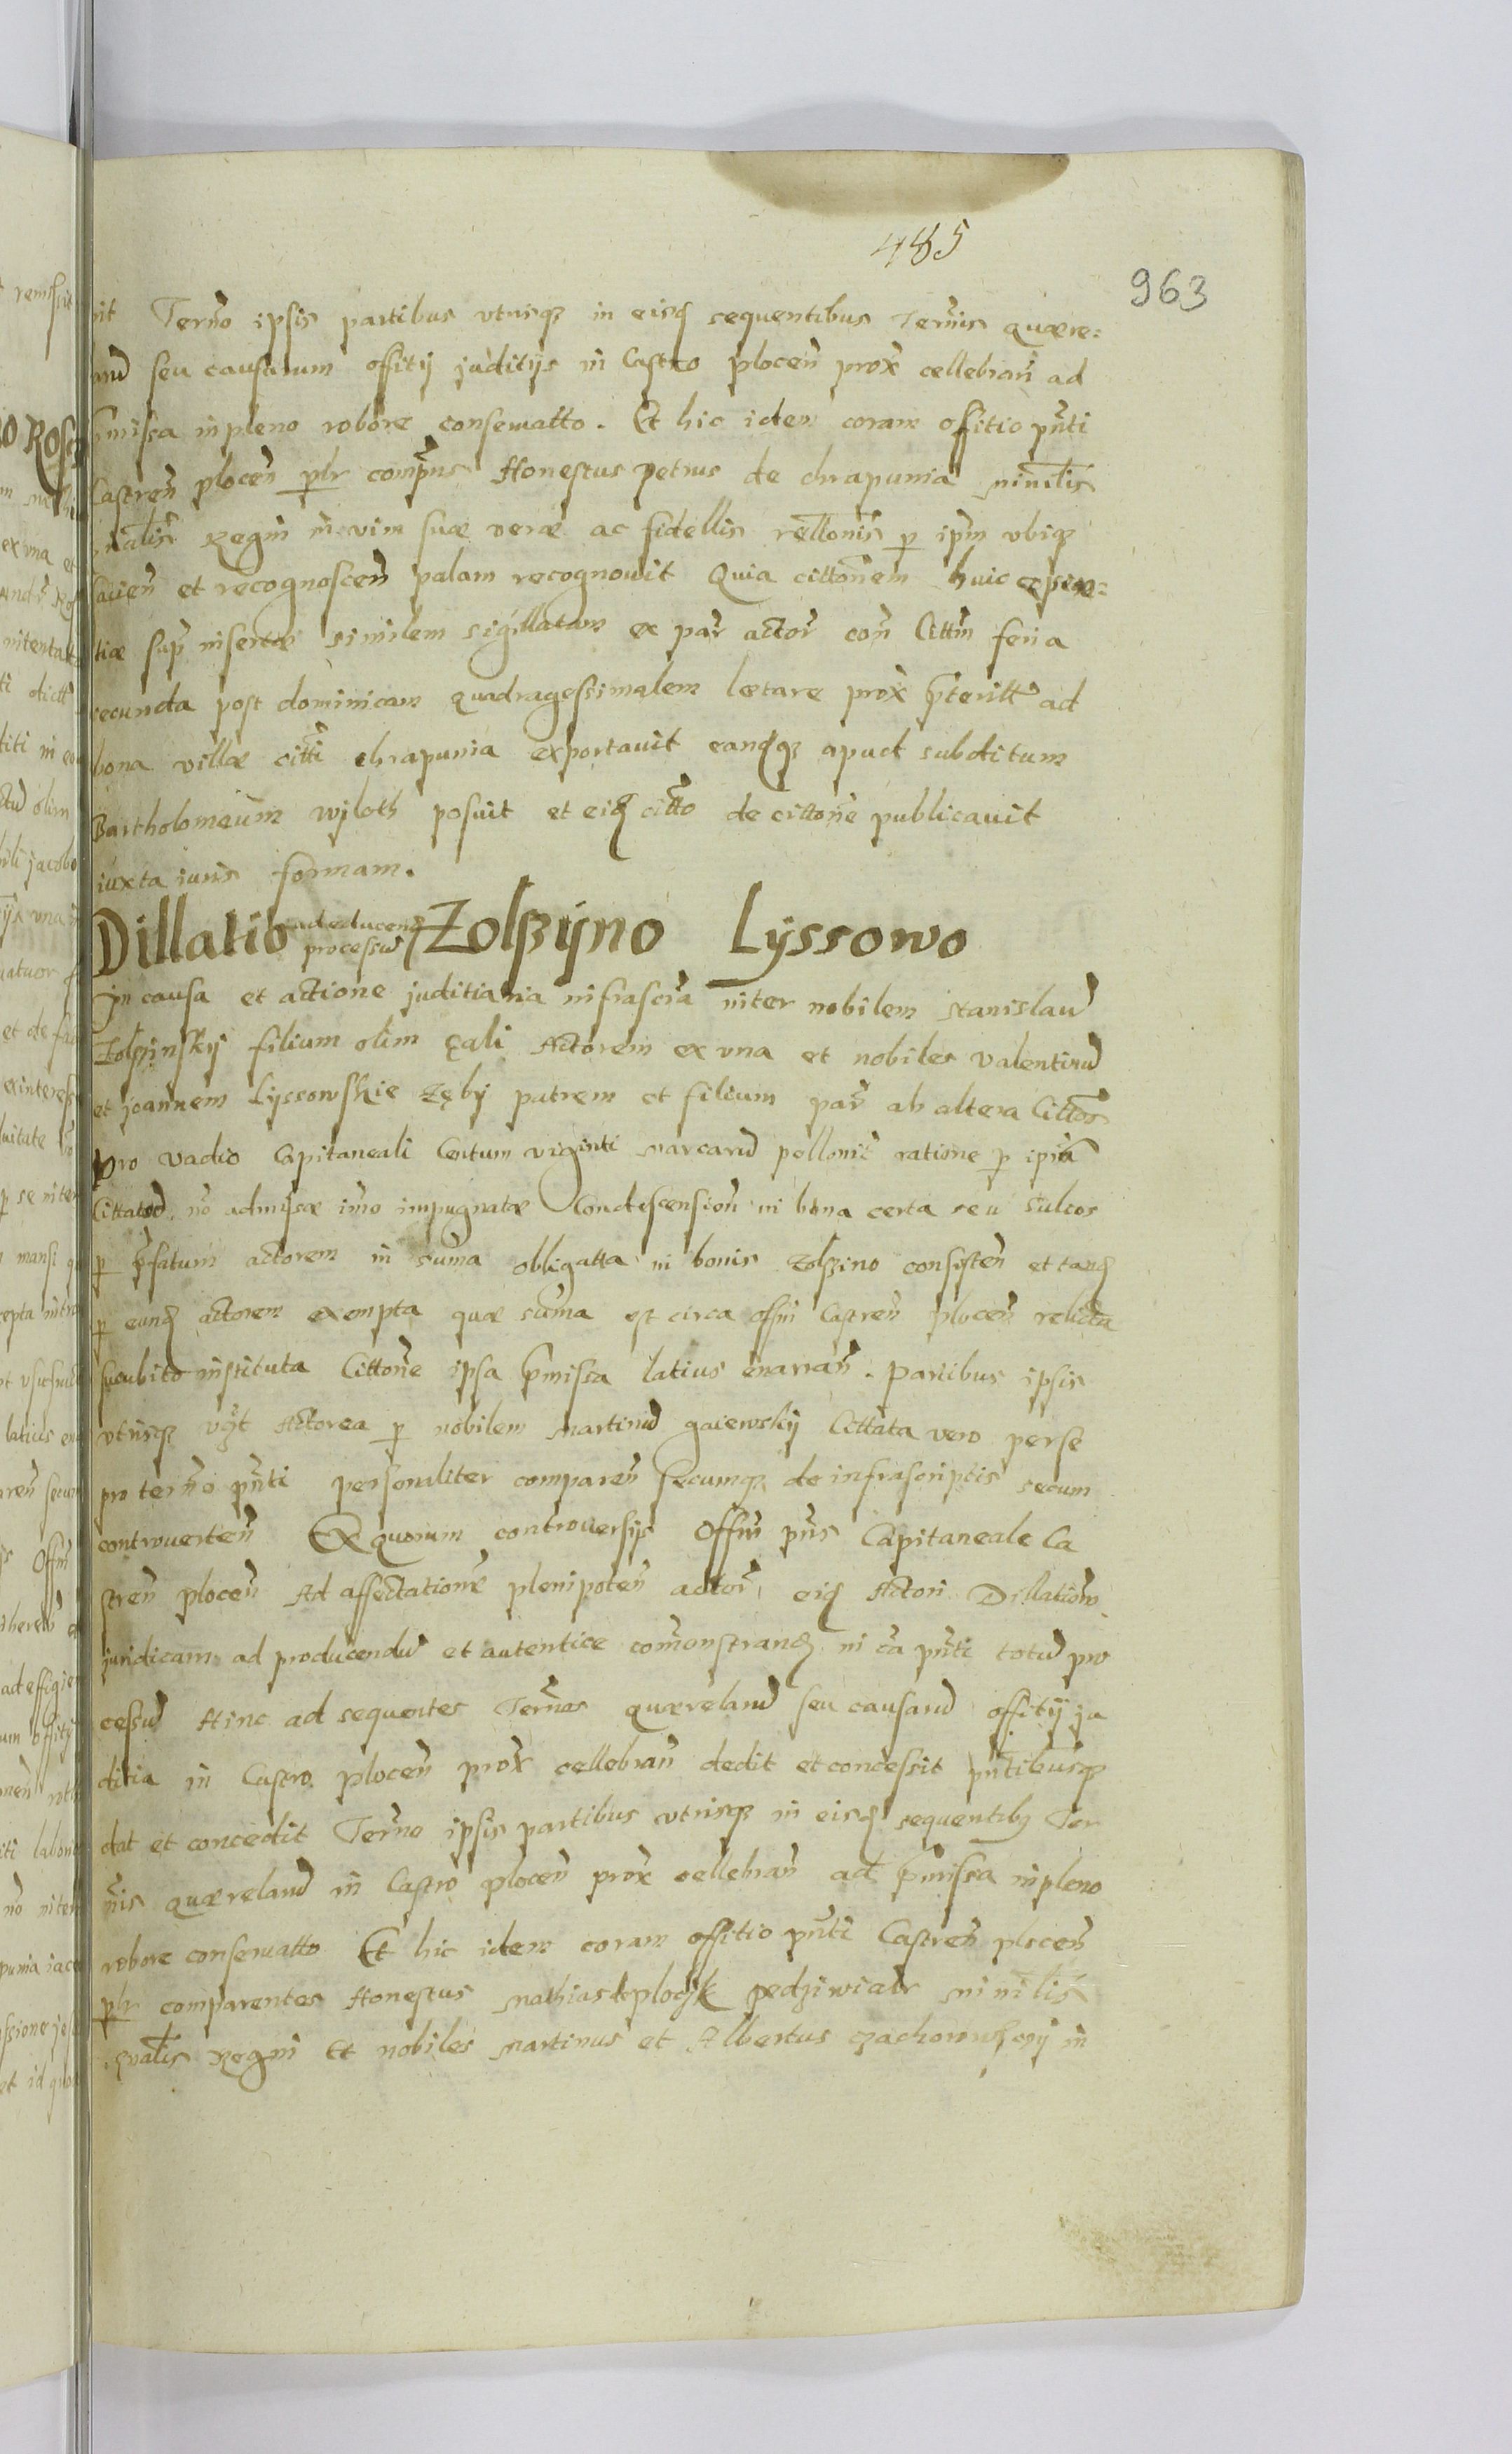 485
963
nit Termo ipsis partibus vtrisq in eisd sequentibus Termis quære:
seu causarum offitij juditijs in Castro plocen prox cellebran ad
missa in pleno robore conseruatto. Et hic idem coram offitio pnti
Castren plocen plr compns Honestus petrus de chrapunia ministlis
gnalis Regni in vim suæ veræ ac fidellis relltionis p ipm vbiq
facien et recognoscen palam recognouit Quia cittonem huic
tiæ sup insertæ similem sigillatam ex par actor con Cittm feria
secunda post dominicam quadragessimalem lætare prox præteritt ad
bona villæ citti chrapunia exportauit eandq apud subditum
Bartholomeum wjloth posuit et eid citto de cittone publicauit
iuxta iuris formam.
Dillatio ad educend processu Zolßyno Lyssowo
In causa et actione juditiaria infrascria inter nobilem stanislaũ
Zolßinskij filium olim Actorem ex vna et nobiles valentinũ
et joannem Lyssowskie Zęby patrem et filium par ab altera Cittos
pro vadio Capitaneali Centum viginti marcarũ pollonic ratione p ipm
Cittatũ no admissæ imo impugnatæ Condescension in bona certa seu sulcos
p pfatum actorem in suma obligatta in bonis zolßino consisten et tand
p eund actorem exempta quæ suma est circa offm Castren plocen relicta
succubito instituta Cittone ipsa pmissa latius enarran. partibus ipsis
vtrisq vzt Actorea p nobilem martinũ gaiewskij Cittata vero per se
pro termo pnti personaliter comparen secumq de infrascriptis secum
controuerten Ex quorum controuersijs Offm pns Capitaneale Ca
stren plocen Ad affectatione plenipoten actor eid Actori Dillation
juridicam ad producendũ et autentice comonstrand in ca pnti totũ pro
cessũ Hinc ad sequentes Termos quærelarũ seu causarũ offitij ju
ditia in Castro plocen prox cellebran dedit et concessit pntibusq
dat et concedit Termo ipsis partibus vtrisq in eisd sequentibq Ter
nis quærelarũ in Castro plocen prox cellebran ad pmissa in pleno
robore conseruatto Et hic idem coram offitio pnti Castren plocen
plr comparentes Honestus mathias de plock pedziwiatr ministlis
gnalis Regni Et nobiles martinus et Albertus in